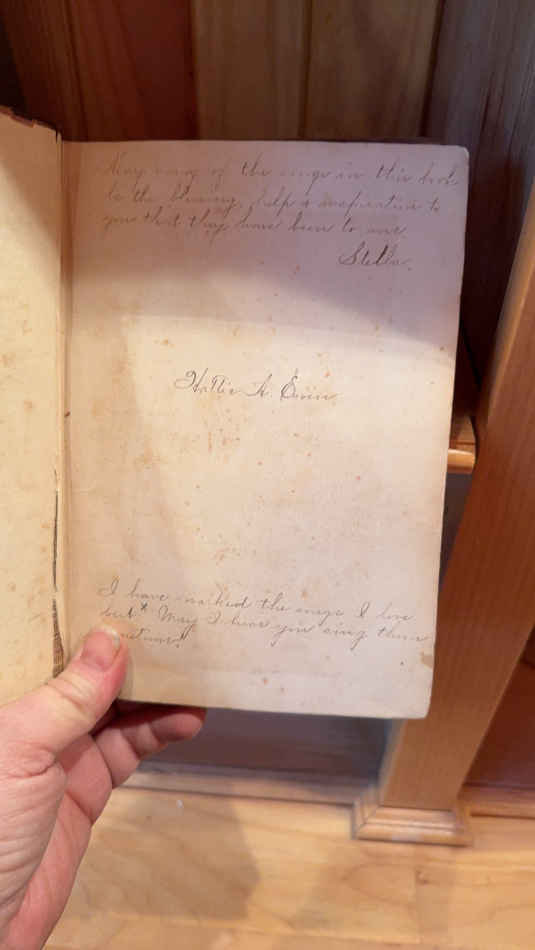 May many of the songs in this book
be the blessing, help & inspiration to
you that they have been to me
Stella.
Hattie A.
I have marked the songs I love
best* May I hear you sing them